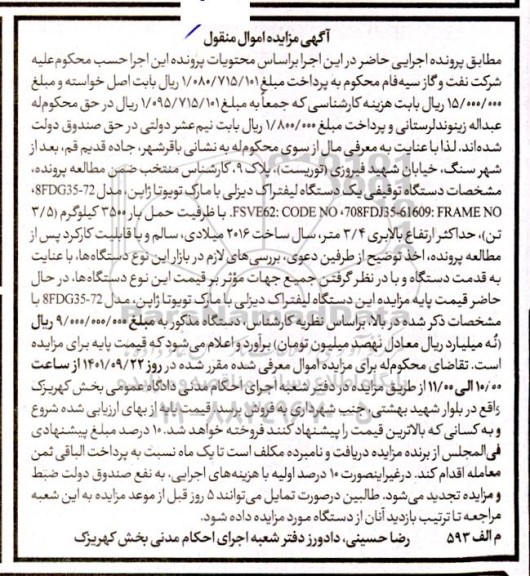 آگهی مزایده اموال منقول
مطابق پرونده اجرایی حاضر در این اجرا براساس محتویات پرونده این اجرا حسب محکوم‌علیه
شرکت نفت و گاز سیه‌فام محکوم به پرداخت مبلغ ۱/۰۸۰/۷۱۵/۱۰۱ ریال بابت اصل خواسته و مبلغ
۱۵/۰۰۰/۰۰۰ ریال بابت هزینه کارشناسی که جمعاً به مبلغ ۱/۰۹۵/۷۱۵/۱۰۱ ریال در حق محکوم‌له
عبداله زینوندلرستانی و پرداخت مبلغ ۱/۸۰۰/۰۰۰ ریال بابت نیم‌عشر دولتی در حق صندوق دولت
شده‌اند. لذا با عنایت به معرفی مال از سوی محکوم‌له به نشانی باقرشهر، جاده قدیم قم، بعد از
شهر سنگ، خیابان شهید فیروزی (توریست)، پلاک ۹، کارشناس منتخب ضمن مطالعه پرونده،
مشخصات دستگاه توقیفی یک دستگاه لیفتراک دیزلی با مارک تویوتا ژاپن، مدل 8FDG35-72،
708FDJ35-61609: FRAME NO، FSVE62: CODE NO. با ظرفیت حمل بار ۳۵۰۰ کیلوگرم (۳/۵
تن)، حداکثر ارتفاع بالابری ۳/۴ متر، سال ساخت ۲۰۱۶ میلادی، سالم و با قابلیت کارکرد پس از
مطالعه پرونده، اخذ توضیح از طرفین دعوی، بررسی‌های لازم در بازار این نوع دستگاه‌ها، با عنایت
به قدمت دستگاه و با در نظر گرفتن جمیع جهات مؤثر بر قیمت این نوع دستگاه‌ها، در حال
حاضر قیمت پایه مزایده این دستگاه لیفتراک دیزلی با مارک تویوتا ژاپن، مدل 8FDG35-72 با
مشخصات ذکر شده در بالا، براساس نظریه کارشناس، دستگاه مذکور به مبلغ ۹/۰۰۰/۰۰۰/۰۰۰ ریال
(نُه میلیارد ریال معادل نهصد میلیون تومان) برآورد و اعلام می‌شود که قیمت پایه برای مزایده
است. تقاضای محکوم‌له برای مزایده اموال معرفی شده مقرر شده در روز ۱۴۰۱/۰۹/۲۲ از ساعت
۱۰/۰۰ الی ۱۱/۰۰ از طریق مزایده در دفتر شعبه اجرای احکام مدنی دادگاه عمومی بخش کهریزک
واقع در بلوار شهید بهشتی، جنب شهرداری به فروش برسد. قیمت پایه از بهای ارزیابی شده شروع
و به کسانی که بالاترین قیمت را پیشنهاد کنند فروخته خواهد شد. ۱۰ درصد مبلغ پیشنهادی
فی‌المجلس از برنده مزایده دریافت و نامبرده مکلف است تا یک ماه نسبت به پرداخت الباقی ثمن
معامله اقدام کند. درغیراینصورت ۱۰ درصد اولیه با هزینه‌های اجرایی، به نفع صندوق دولت ضبط
و مزایده تجدید می‌شود. طالبین درصورت تمایل می‌توانند ۵ روز قبل از موعد مزایده به این شعبه
مراجعه تا ترتیب بازدید آنان از دستگاه مورد مزایده داده شود.
م الف ۵۹۳ رضا حسینی، دادورز دفتر شعبه اجرای احکام مدنی بخش کهریزک